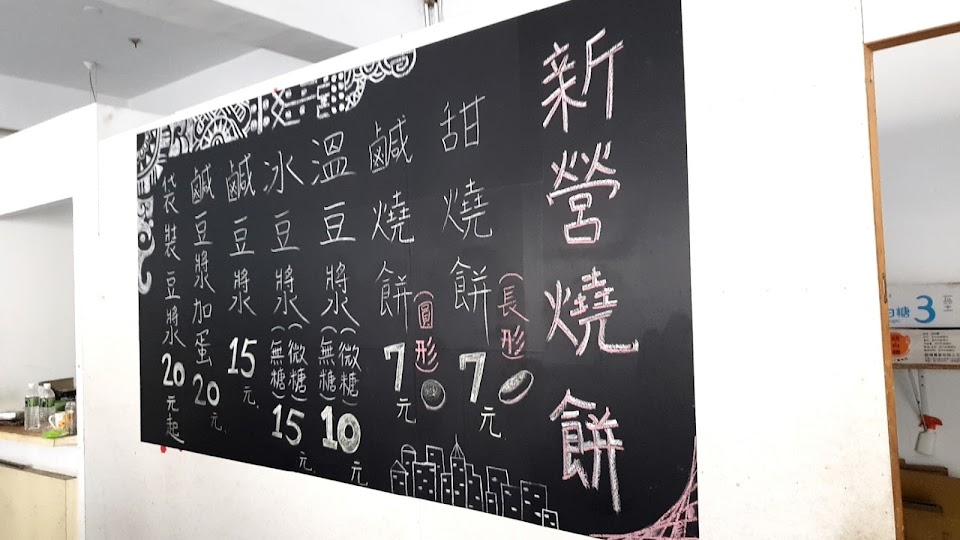 新營燒餅
甜燒餅(長形)7元
鹹燒餅(圓形)7元
溫豆漿(微糖)(無糖)10元
冰豆漿(微糖)(無糖)15元
鹹豆漿15元
鹹豆漿加蛋20元
袋裝豆漿20元起
糖3